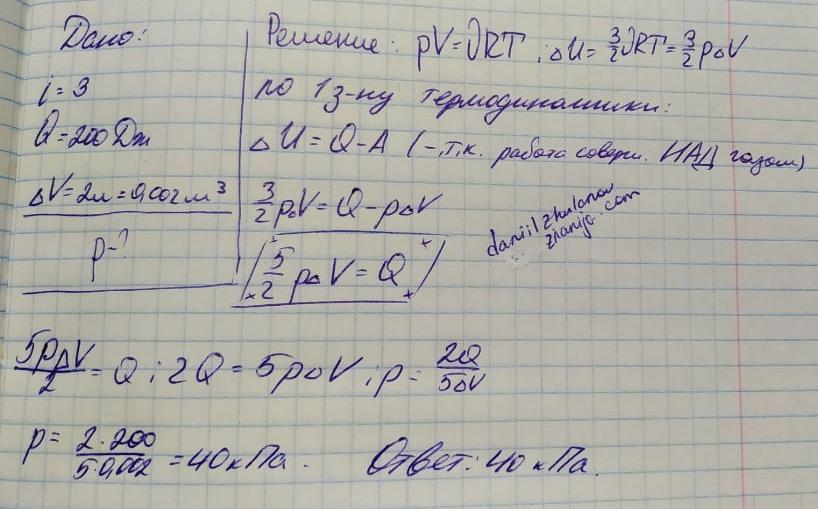 Дано:
i = 3
Q = 200 Дж
ΔV = 2л = 0,002 м³
p - ?
Решение: pV = νRT ; ΔU = 3/2 νRT = 3/2 pΔV
по 1 з-ну термодинамики:
ΔU = Q - A (-, т.к. работа соверш. НАД газом)
3/2 pΔV = Q - pΔV
5/2 pΔV = Q
daniilzhulanov
znanija.com
5pΔV/2 = Q ; 2Q = 5pΔV ; p = 2Q/5ΔV
p = 2·200/5·0,002 = 40 кПа.
Ответ: 40 кПа.